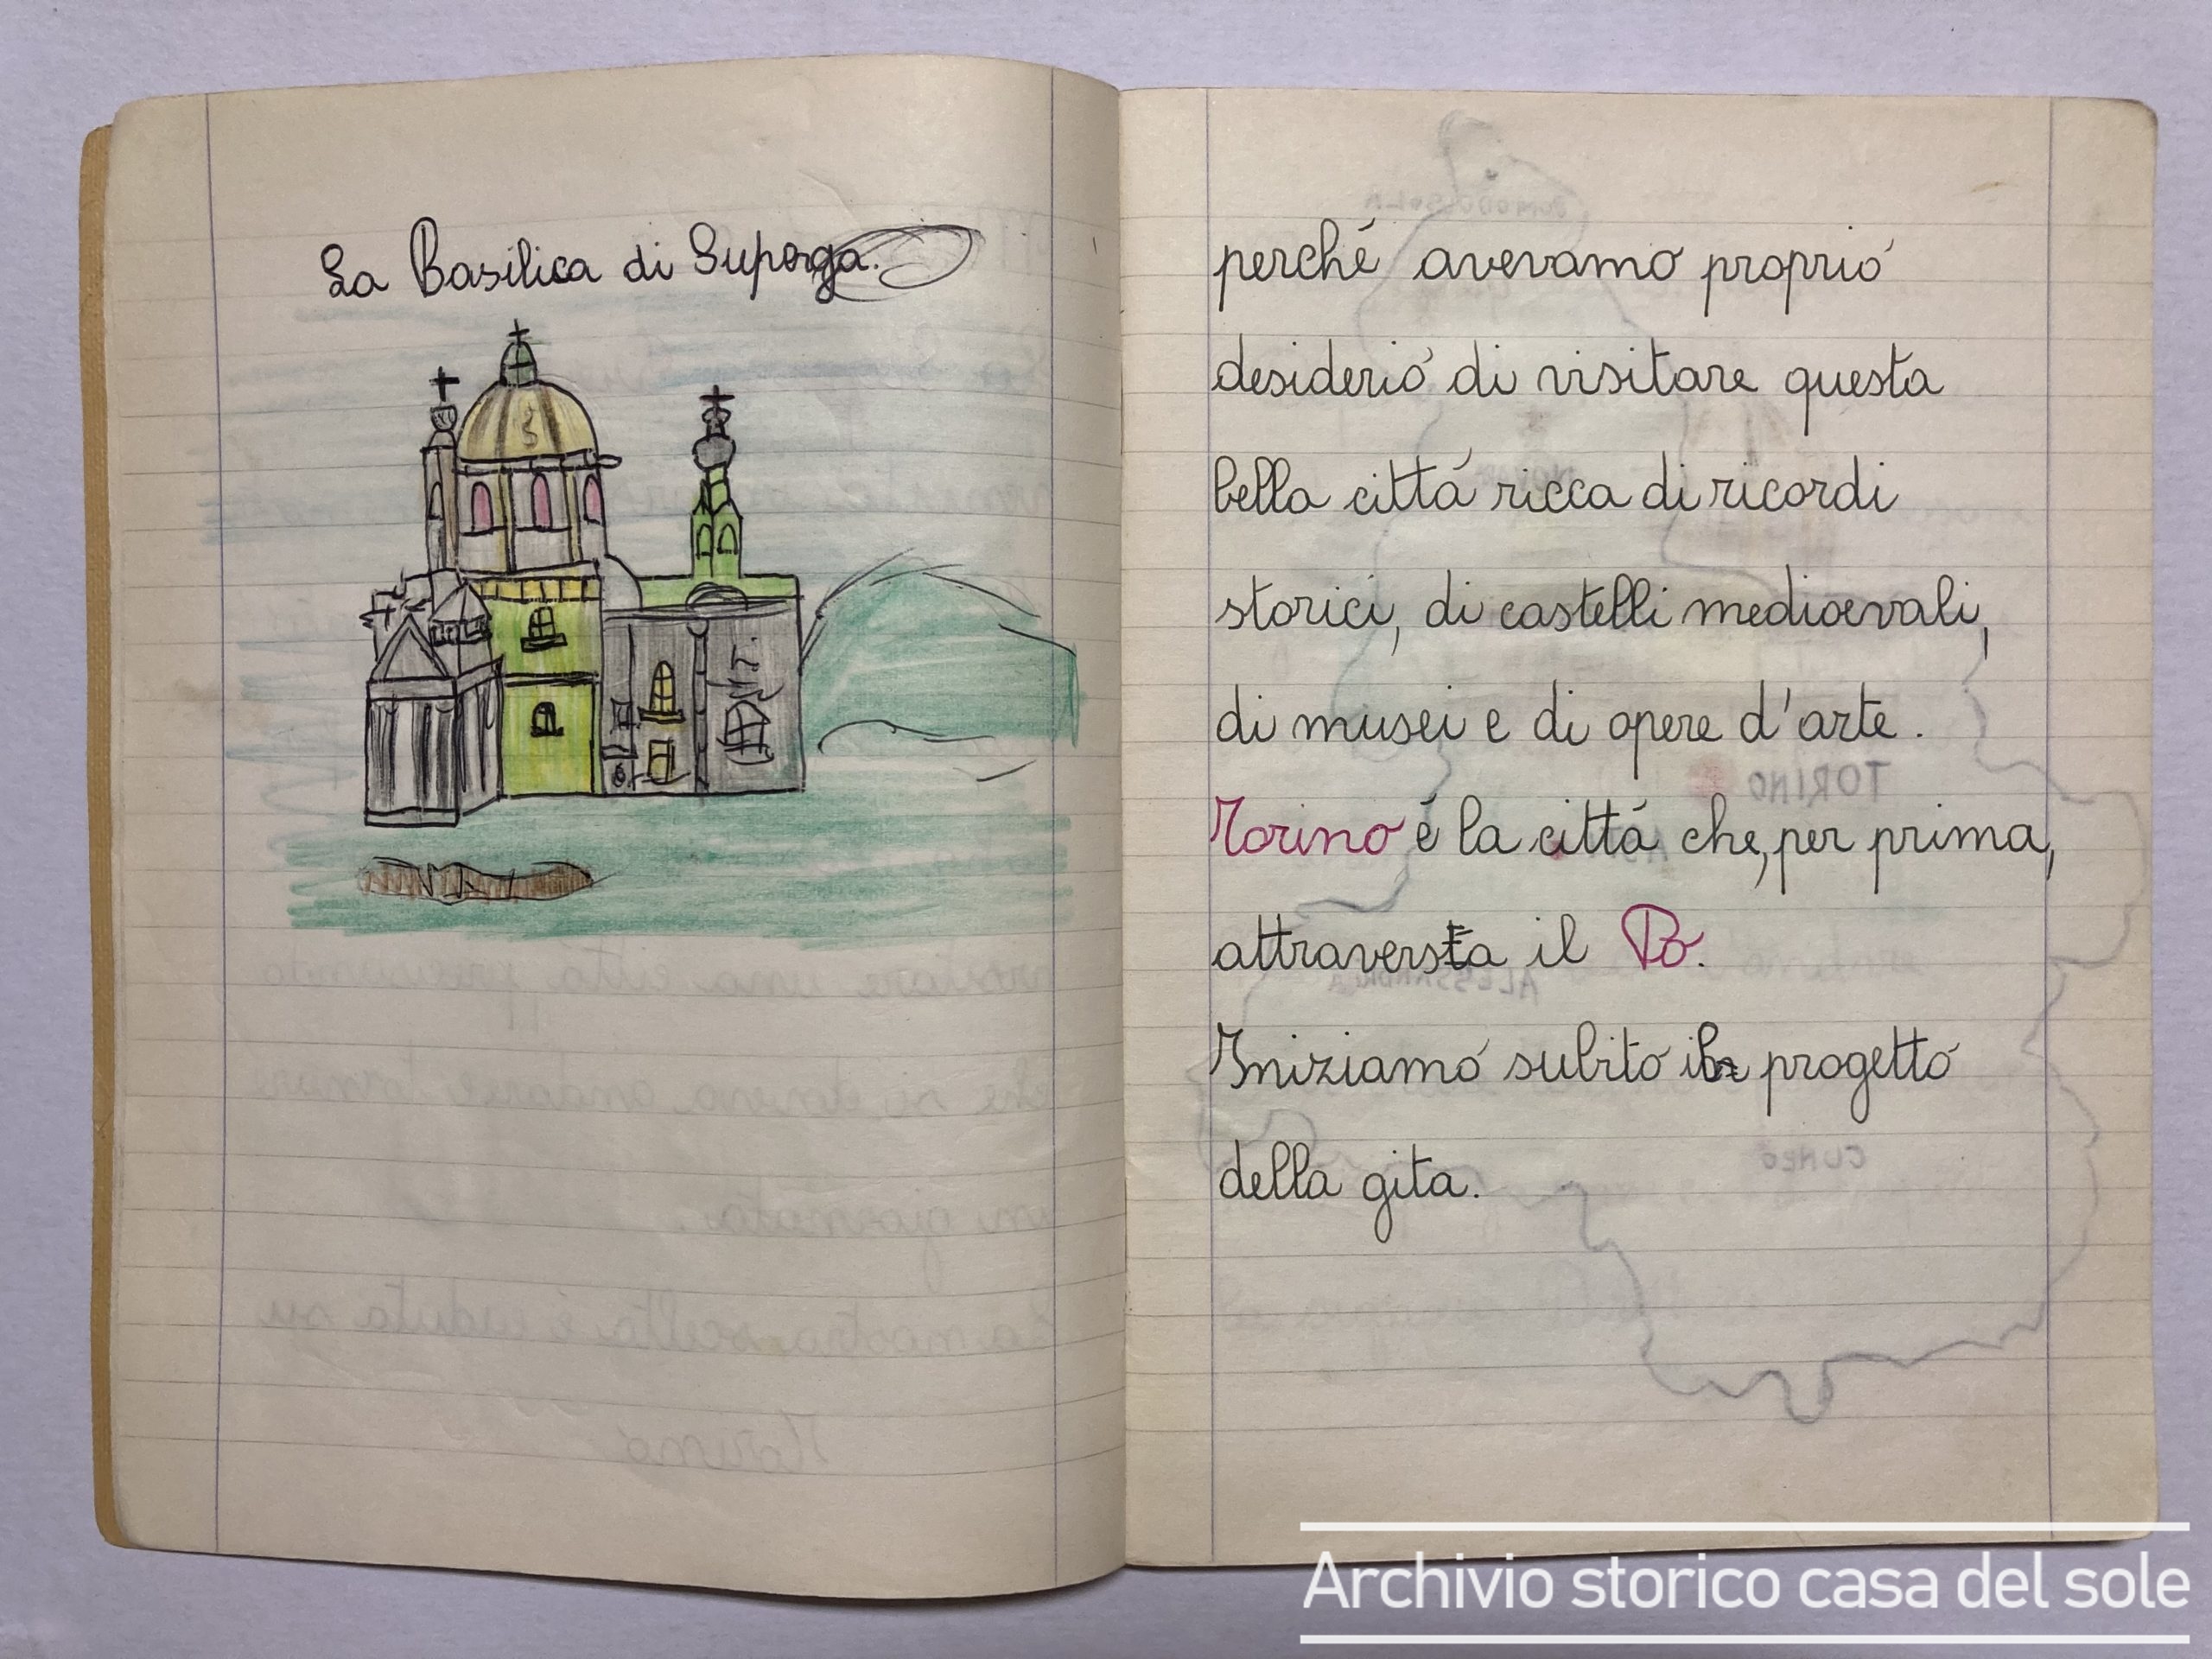 La Basilica di Superga.
perché avevamo proprio
desiderio di visitare questa
bella cittá ricca di ricordi
storici, di castelli medioevali,
di musei e di opere d'arte.
Torino é la cittá che, per prima,
attraversa il Po.
Iniziamo subito il progetto
della gita.
TORINO
ALESSANDRIA
CUNEO
Archivio storico casa del sole